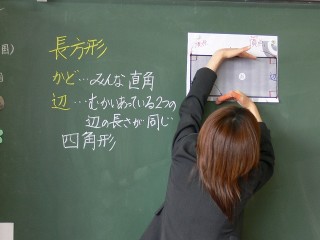 長方形
かど…みんな直角
辺…むかいあっている2つの
辺の長さが同じ
四角形
辺